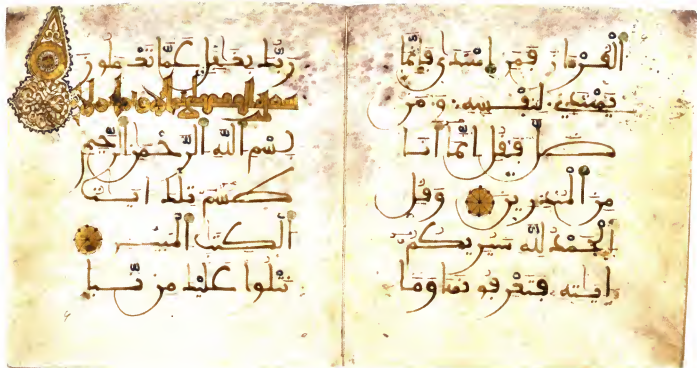 الْقُرْءَانَ فَمَنِ اهْتَدَى فَإِنَّمَا
يَهْتَدِي لِنَفْسِهِ وَمَن
ضَلَّ فَقُلْ إِنَّمَا أَنَا
مِنَ الْمُنذِرِينَ وَقُلِ
الْحَمْدُ لِلَّهِ سَيُرِيكُمْ
ءَايَتِهِ فَتَعْرِفُونَهَا وَمَا
رَبُّكَ بِغَفِلٍ عَمَّا تَعْمَلُونَ
بِسْمِ اللَّهِ الرَّحْمَنِ الرَّحِيمِ
طسم تِلْكَ ءَايَتُ
الْكِتَبِ الْمُبِينِ
نَتْلُوا عَلَيْكَ مِن نَّبَإِ